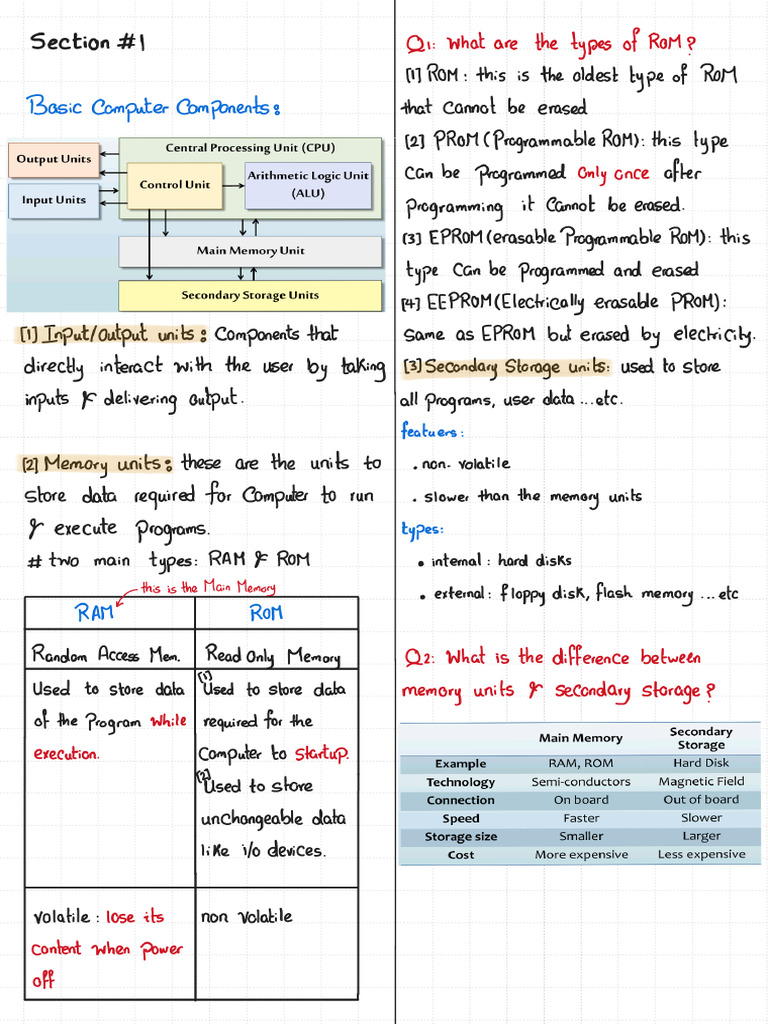 Section #1
Basic Computer Components:
Central Processing Unit (CPU)
Output Units
Input Units
Control Unit
Arithmetic Logic Unit
(ALU)
Main Memory Unit
Secondary Storage Units
[1] Input/output units: Components that
directly interact with the user by taking
inputs & delivering output.
[2] Memory units: these are the units to
store data required for Computer to run
& execute Programs.
# two main types: RAM & ROM
this is the Main Memory
RAM
ROM
Random Access Mem.
Read Only Memory
Used to store data
of the Program while
execution.
[1] Used to store data
required for the
Computer to startup.
[2] Used to store
unchangeable data
like i/o devices.
volatile: lose its
content when power
off
non volatile
Q1: What are the types of ROM?
[1] ROM: this is the oldest type of ROM
that cannot be erased
[2] PROM (Programmable ROM): this type
can be Programmed only once after
Programming it cannot be erased.
[3] EPROM (erasable Programmable ROM): this
type can be Programmed and erased
[4] EEPROM (Electrically erasable PROM):
same as EPROM but erased by electricity.
[3] Secondary Storage units: used to store
all Programs, user data ...etc.
featuers:
• non-volatile
• slower than the memory units
types:
• internal: hard disks
• external: floppy disk, flash memory ...etc
Q2: What is the difference between
memory units & secondary storage?
Main Memory Secondary Storage
Example RAM, ROM Hard Disk
Technology Semi-conductors Magnetic Field
Connection On board Out of board
Speed Faster Slower
Storage size Smaller Larger
Cost More expensive Less expensive